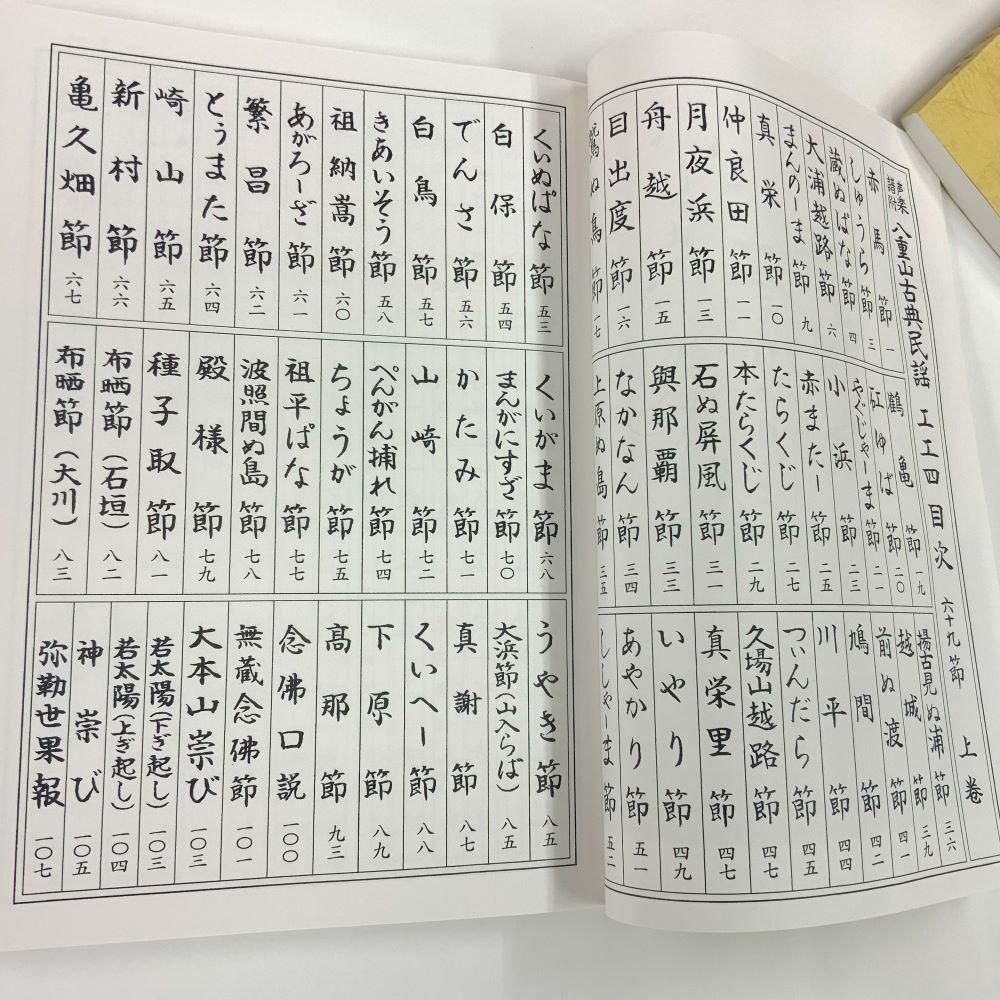 声楽譜附 八重山古典民謡 工工四 目次 六十九節 上巻
赤馬節 一
しゅうら節 三
蔵ぬぱな節 四
大浦越路節 六
まんのーま節 九
真栄節 一〇
仲良田節 一一
月夜浜節 一三
舟越節 一五
目出度節 一六
鷲ぬ鳥節 一七
鶴亀節 一九
紅ゆば節 二〇
やぐじゃーま節 二一
小浜節 二三
赤また一節 二五
たらくじ節 二七
本たらくじ節 二九
石ぬ屏風節 三一
與那覇節 三三
なかなん節 三四
上原ぬ島節 三五
揚古見ぬ浦節 三六
越城節 三九
前ぬ渡節 四一
鳩間節 四二
川平節 四四
つぃんだら節 四七
久場山越路節 四七
真栄里節 四七
いやり節 四九
あやかり節 五一
ししゃーま節 五二
くいぬぱな節 五三
白保節 五四
でんさ節 五六
白鳥節 五七
きあいそう節 五八
祖納嵩節 六〇
あがろーざ節 六一
繁昌節 六二
とぅまた節 六四
崎山節 六五
新村節 六六
亀久畑節 六七
くいがま節 六八
まんがにすざ節 七〇
かたみ節 七一
山崎節 七二
ぺんがん捕れ節 七四
ちょうが節 七五
祖平ぱな節 七七
波照間ぬ島節 七八
殿様節 七九
種子取節 八一
布晒節(石垣) 八二
布晒節(大川) 八三
うやき節 八五
大浜節(山入らば) 八五
真謝節 八七
くいへー節 八八
下原節 八九
高那節 九三
念佛口説 一〇〇
無蔵念佛節 一〇一
大本山崇び 一〇三
若太陽(下ぎ起し) 一〇三
若太陽(上ぎ起し) 一〇四
神崇び 一〇五
弥勒世果報 一〇七